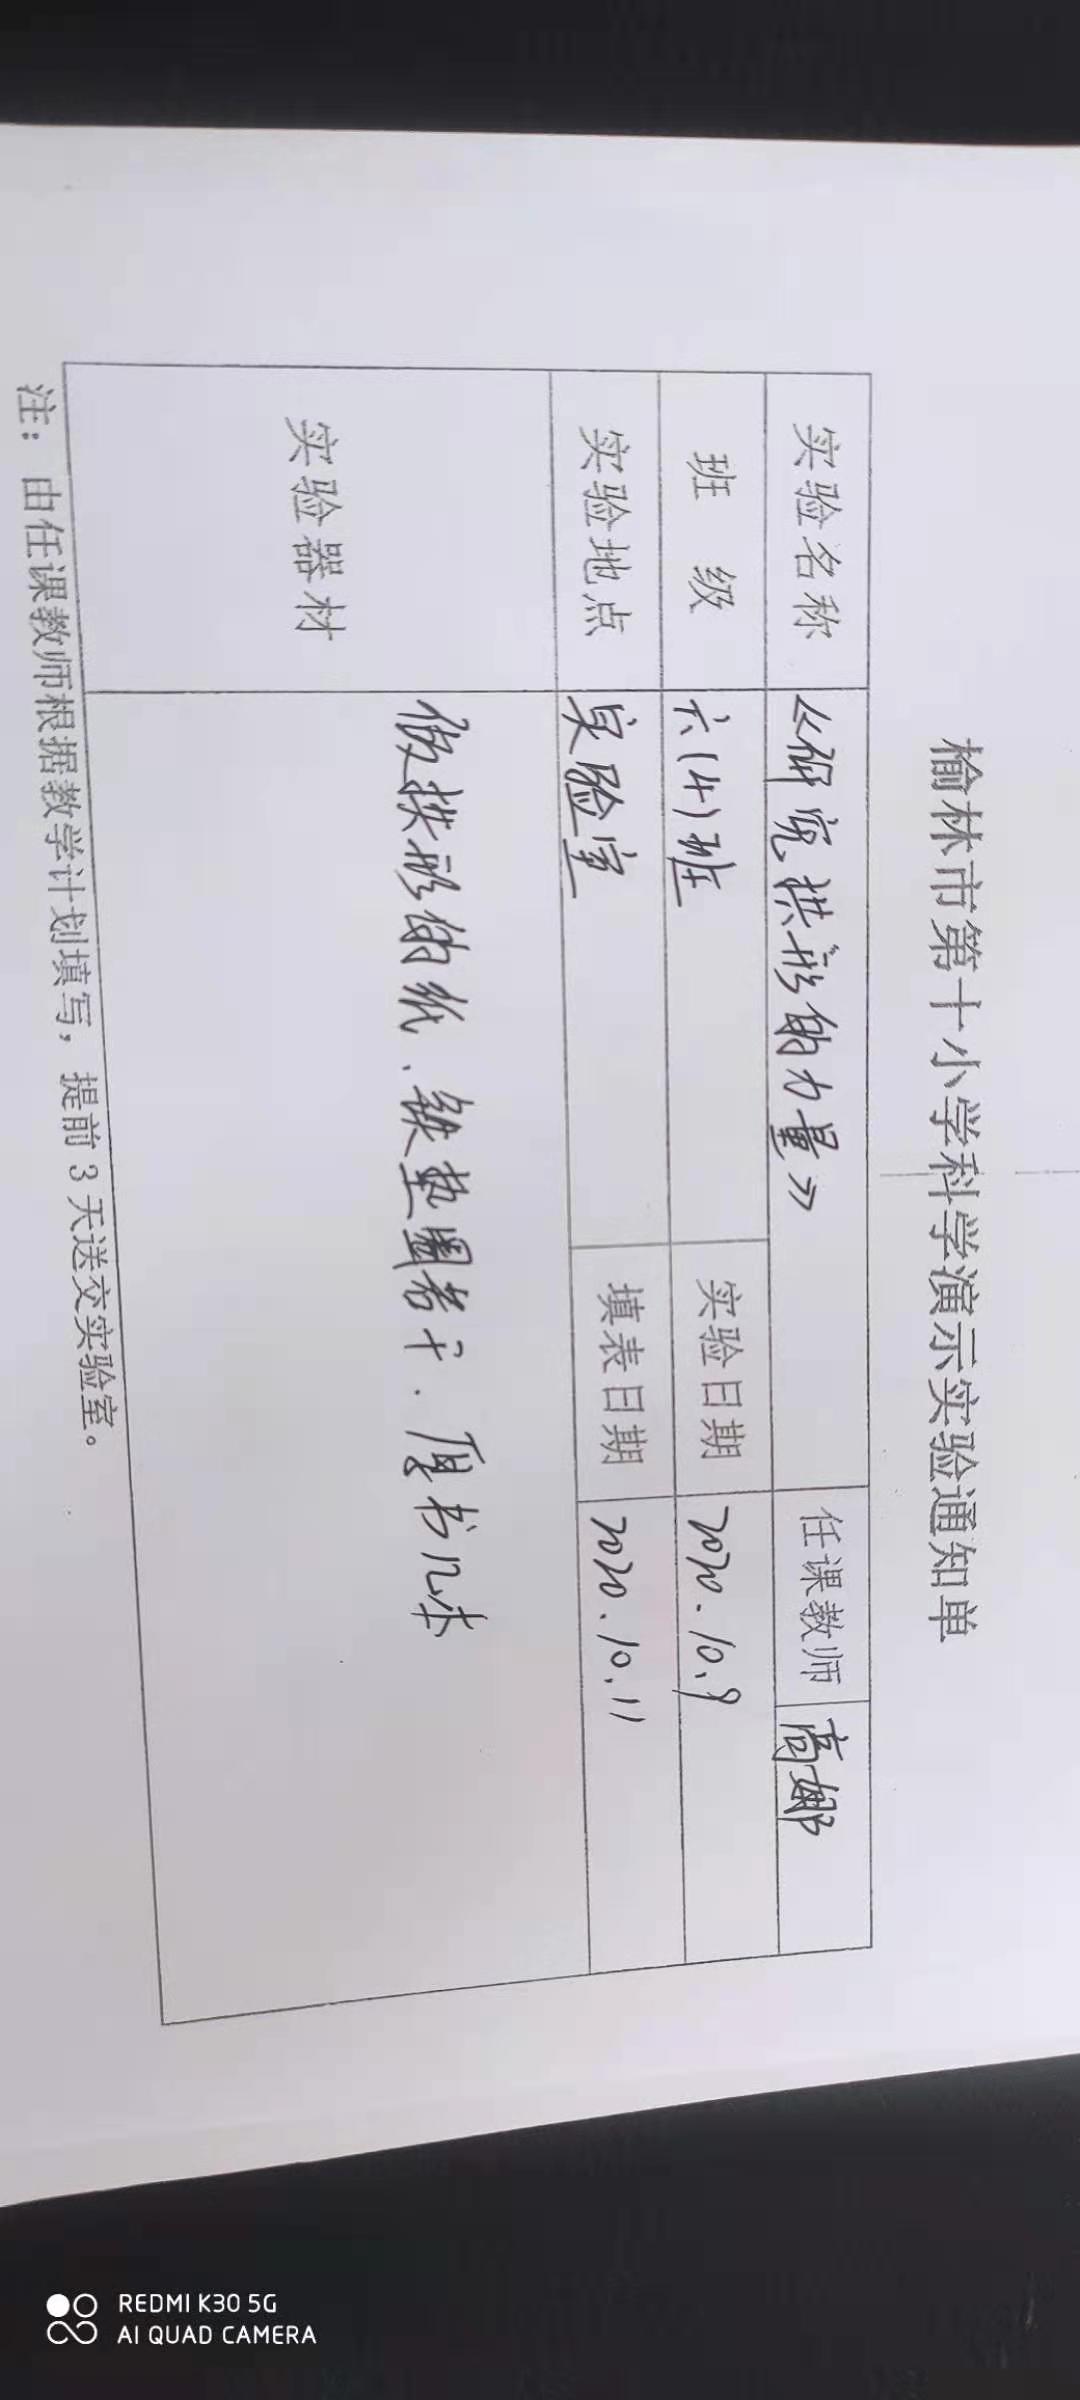 榆林市第十小学科学演示实验通知单
实验名称 《研究拱形的力量》 任课教师 高娜
班 级 六(4)班 实验日期 2020.10.9
实验地点 实验室 填表日期 2020.10.11
实验器材 做拱形的纸、铁垫圈若干.厚书几本
注：由任课教师根据教学计划填写，提前3天送交实验室。
REDMI K30 5G
AI QUAD CAMERA